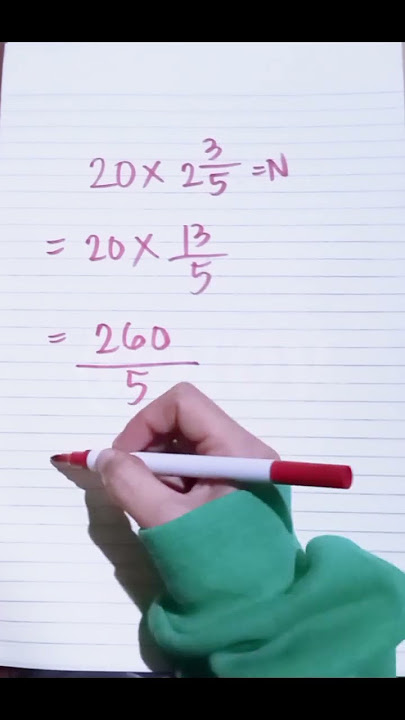 20 × 2 3/5 = N
= 20 × 13/5
= 260/5